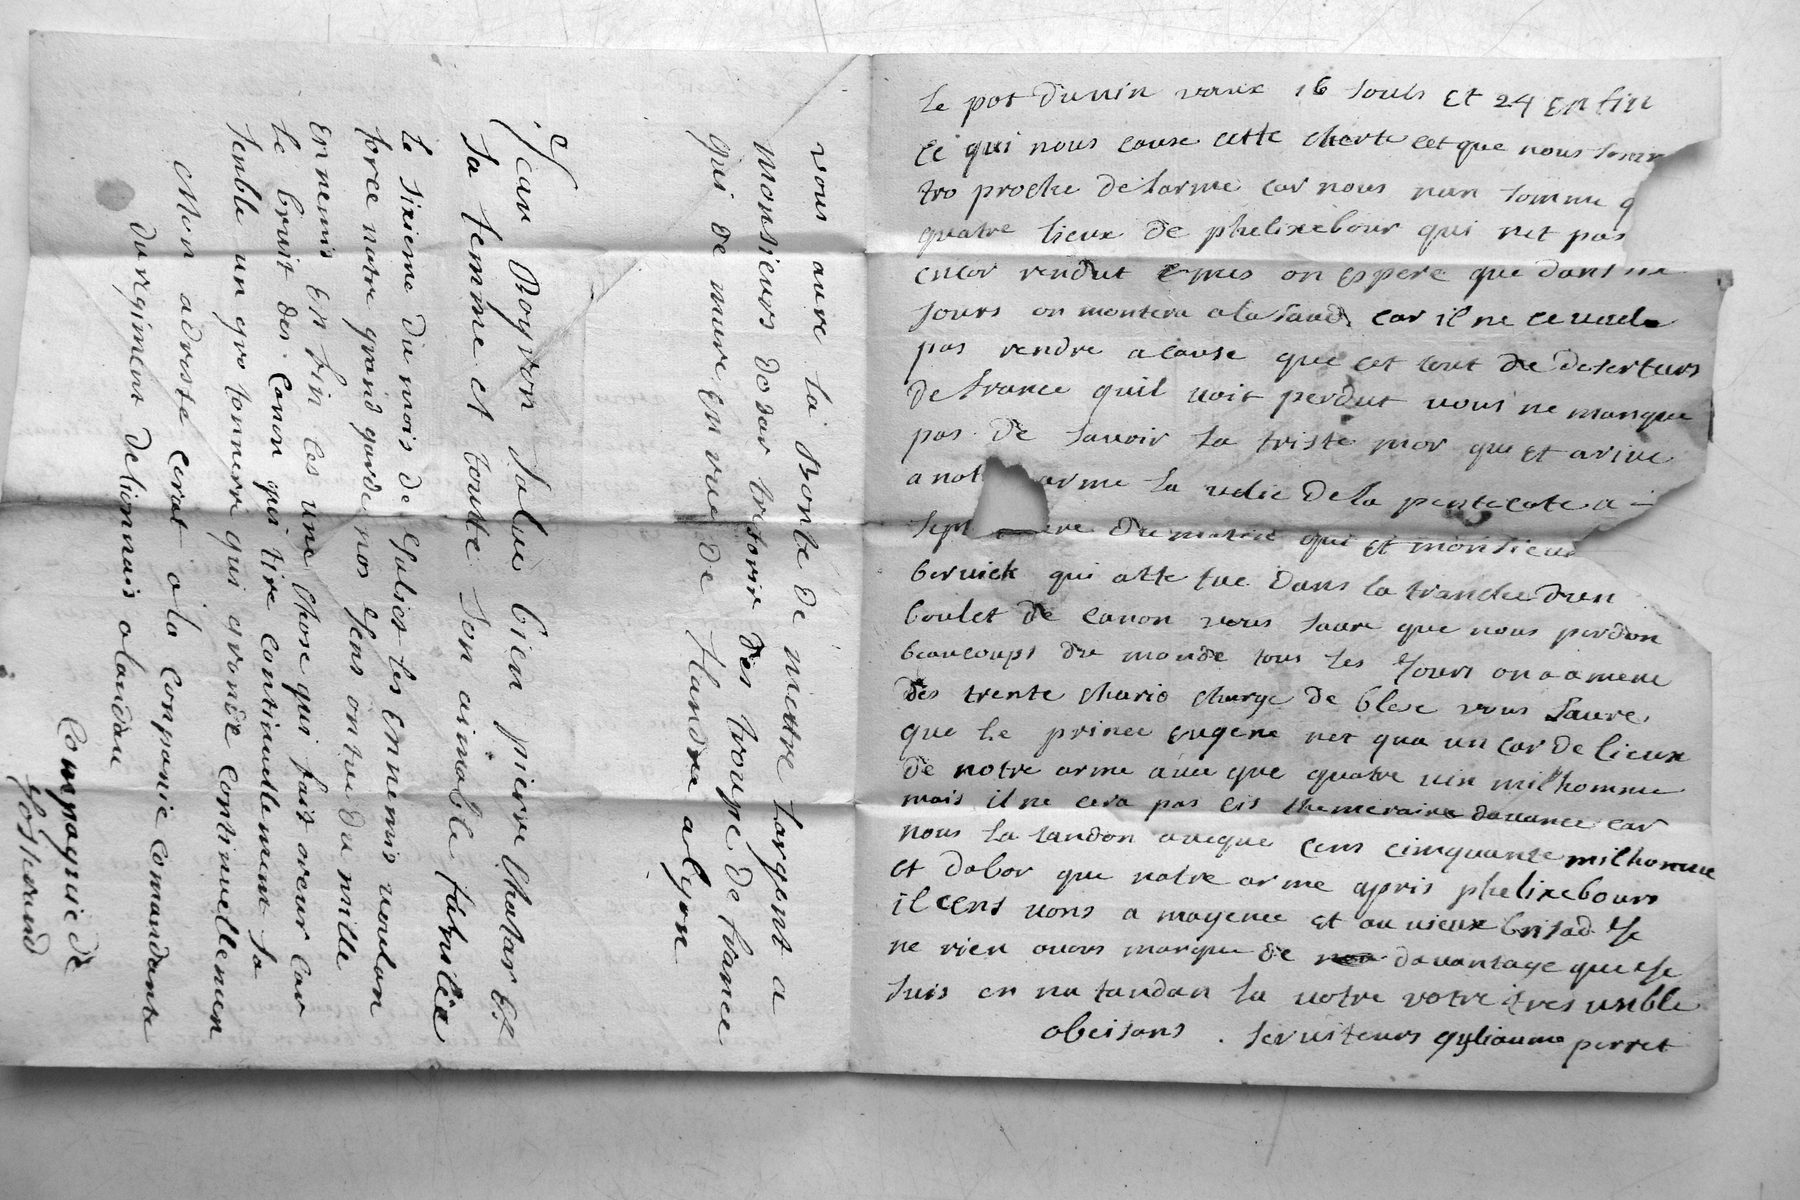 le pot duvin vaux 16 souls et 24 en fin
ce qui nous cause cette cherte cet que nous somm
tro proche de larme car nous nan somme q
quatre lieux de phelixebour qui net pas
encor rendut mes on espere que dans
jours on montera a la saud car il ne ce veule
pas rendre a cause que cet tout de deserteurs
de france quil voit perdut vous ne manque
pas de savoir la triste mor que et arive
a not arme la velie de la pentecote a
sept ere du matin qui et monsieur
bervick qui atte tue dans la tranchee dun
boulet de canon vous saure que nous perdon
beaucoups du monde tous les jours on a amene
des trente chario charge de blese vous saure
que le prince eugene net qua un car de lieux
de notre arme avec que quatre vin mil homme
mais il ne cera pas cis themeraire davance car
nous la tandon aveque cens cinquante mil homme
et dabor que notre arme apris phelixebours
il cens vons a mayence et au vieux brisad je
ne rien avors marque de davantage que je
suis en na tandan la votre votre tres umble
obeisans . serviteurs gyliaume perret
vous aure la bonte de mettre largent a
monsieurs dosar tresorir des troupe de france
qui de mure en rue de flandre a lyon
Jean Royron salue bien pierre chatar et
sa femme et toutte son aimable familie
le sixieme du mois de Juliet les ennemis voulan
force notre grand garde nos gens on tue du mille
ennemis en fin ces une chose qui fait oreur car
le bruit des canon qui tire continuellement sa
semble un gro tonnerre qui gronde continuellemen
Mon adresse cerat a la conpanie comandante
du regiment delionnais a landau
Compagnie de